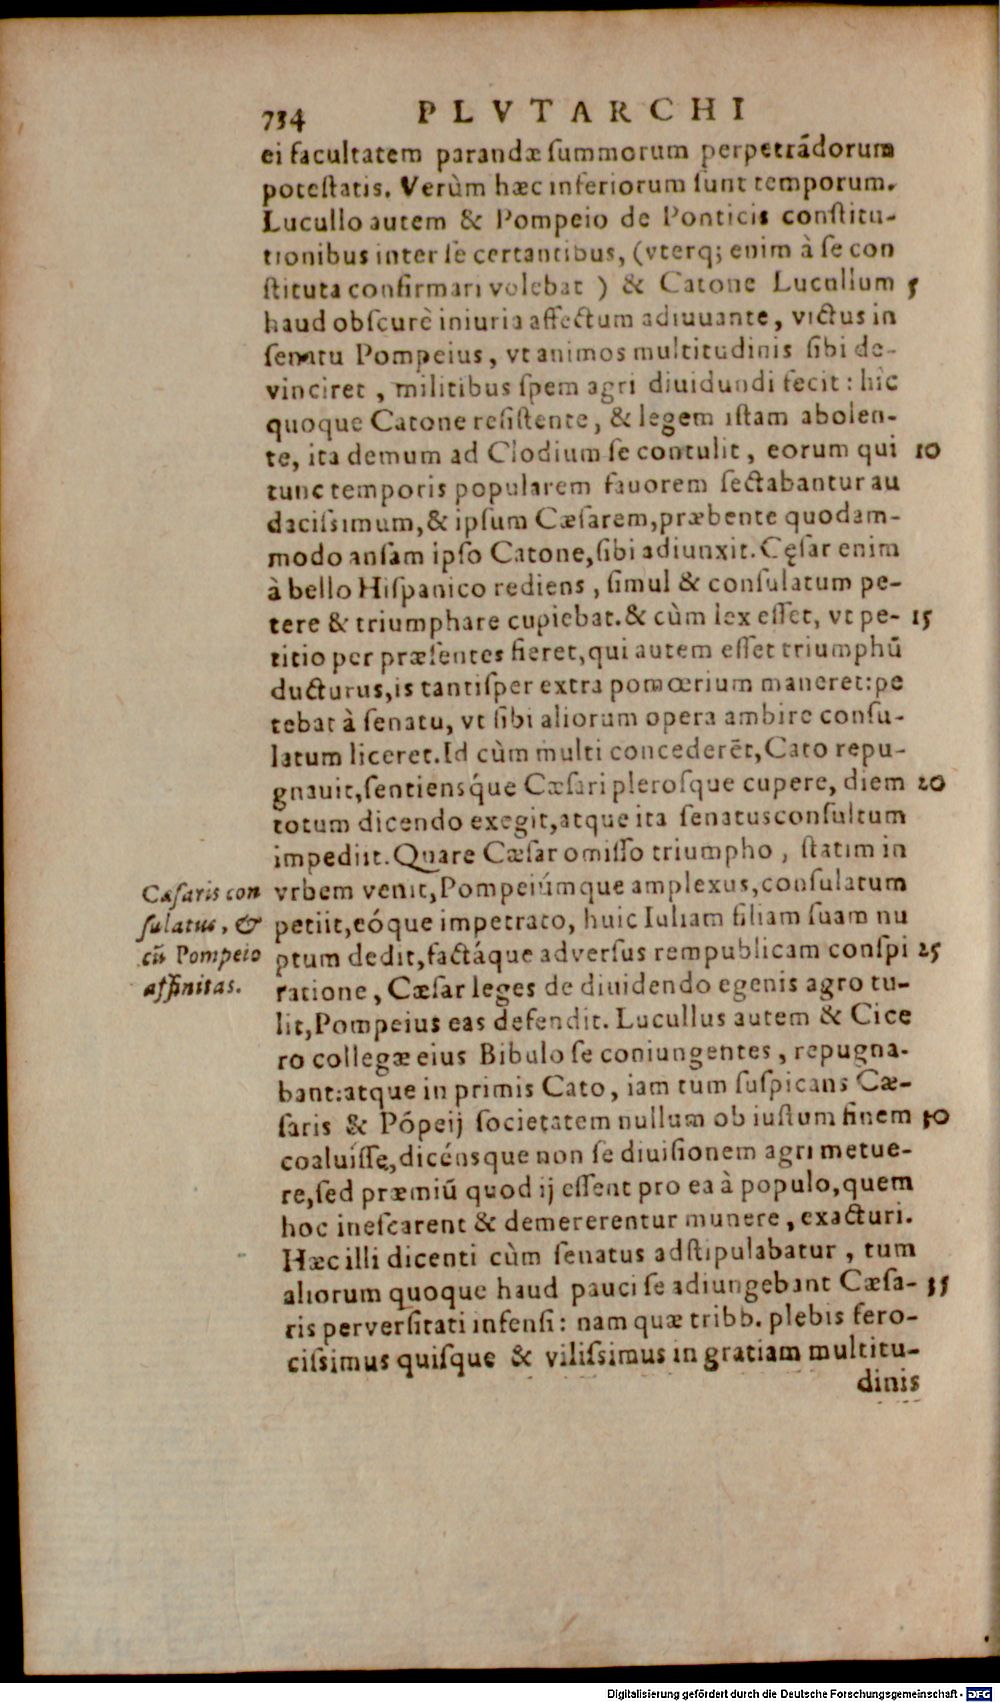 734 PLVTARCHI
ei facultatem parandæ summorum perpetrãdorum
potestatis. Verùm hæc inferiorum sunt temporum.
Lucullo autem & Pompeio de Ponticis constitu-
tionibus inter se certantibus, (vterq; enim à se con
stituta confirmari volebat ) & Catone Lucullum 5
haud obscurè iniuria affectum adiuuante, victus in
senatu Pompeius, vt animos multitudinis sibi de-
vinciret, militibus spem agri diuidundi fecit: hîc
quoque Catone resistente, & legem istam abolen-
te, ita demum ad Clodium se contulit, eorum qui 10
tunc temporis popularem fauorem sectabantur au
dacissimum, & ipsum Cæsarem, præbente quodam-
modo ansam ipso Catone, sibi adiunxit. Cęsar enim
à bello Hispanico rediens, simul & consulatum pe-
tere & triumphare cupiebat. & cùm lex esset, vt pe- 15
titio per præsentes fieret, qui autem esset triumphũ
ducturus, is tantisper extra pomœrium maneret: pe
tebat à senatu, vt sibi aliorum opera ambire consu-
latum liceret. Id cùm multi concederẽt, Cato repu-
gnauit, sentiensq́ue Cæsari plerosque cupere, diem 20
totum dicendo exegit, atque ita senatusconsultum
impediit. Quare Cæsar omisso triumpho, statim in
Cæsaris con
sulatus, &
cũ Pompeio
affinitas.
vrbem venit, Pompeiúmque amplexus, consulatum
petiit, eóque impetrato, huic Iuliam filiam suam nu
ptum dedit, factáque adversus rempublicam conspi 25
ratione, Cæsar leges de diuidendo egenis agro tu-
lit, Pompeius eas defendit. Lucullus autem & Cice
ro collegæ eius Bibulo se coniungentes, repugna-
bant: atque in primis Cato, iam tum suspicans Cæ-
saris & Põpeij societatem nullum ob iustum finem 30
coaluisse, dicénsque non se diuisionem agri metue-
re, sed præmiũ quod ij essent pro ea à populo, quem
hoc inescarent & demererentur munere, exacturi.
Hæc illi dicenti cùm senatus adstipulabatur, tum
aliorum quoque haud pauci se adiungebant Cæsa- 35
ris perversitati infensi: nam quæ tribb. plebis fero-
cissimus quisque & vilissimus in gratiam multitu-
dinis
Digitalisierung gefördert durch die Deutsche Forschungsgemeinschaft - DFG